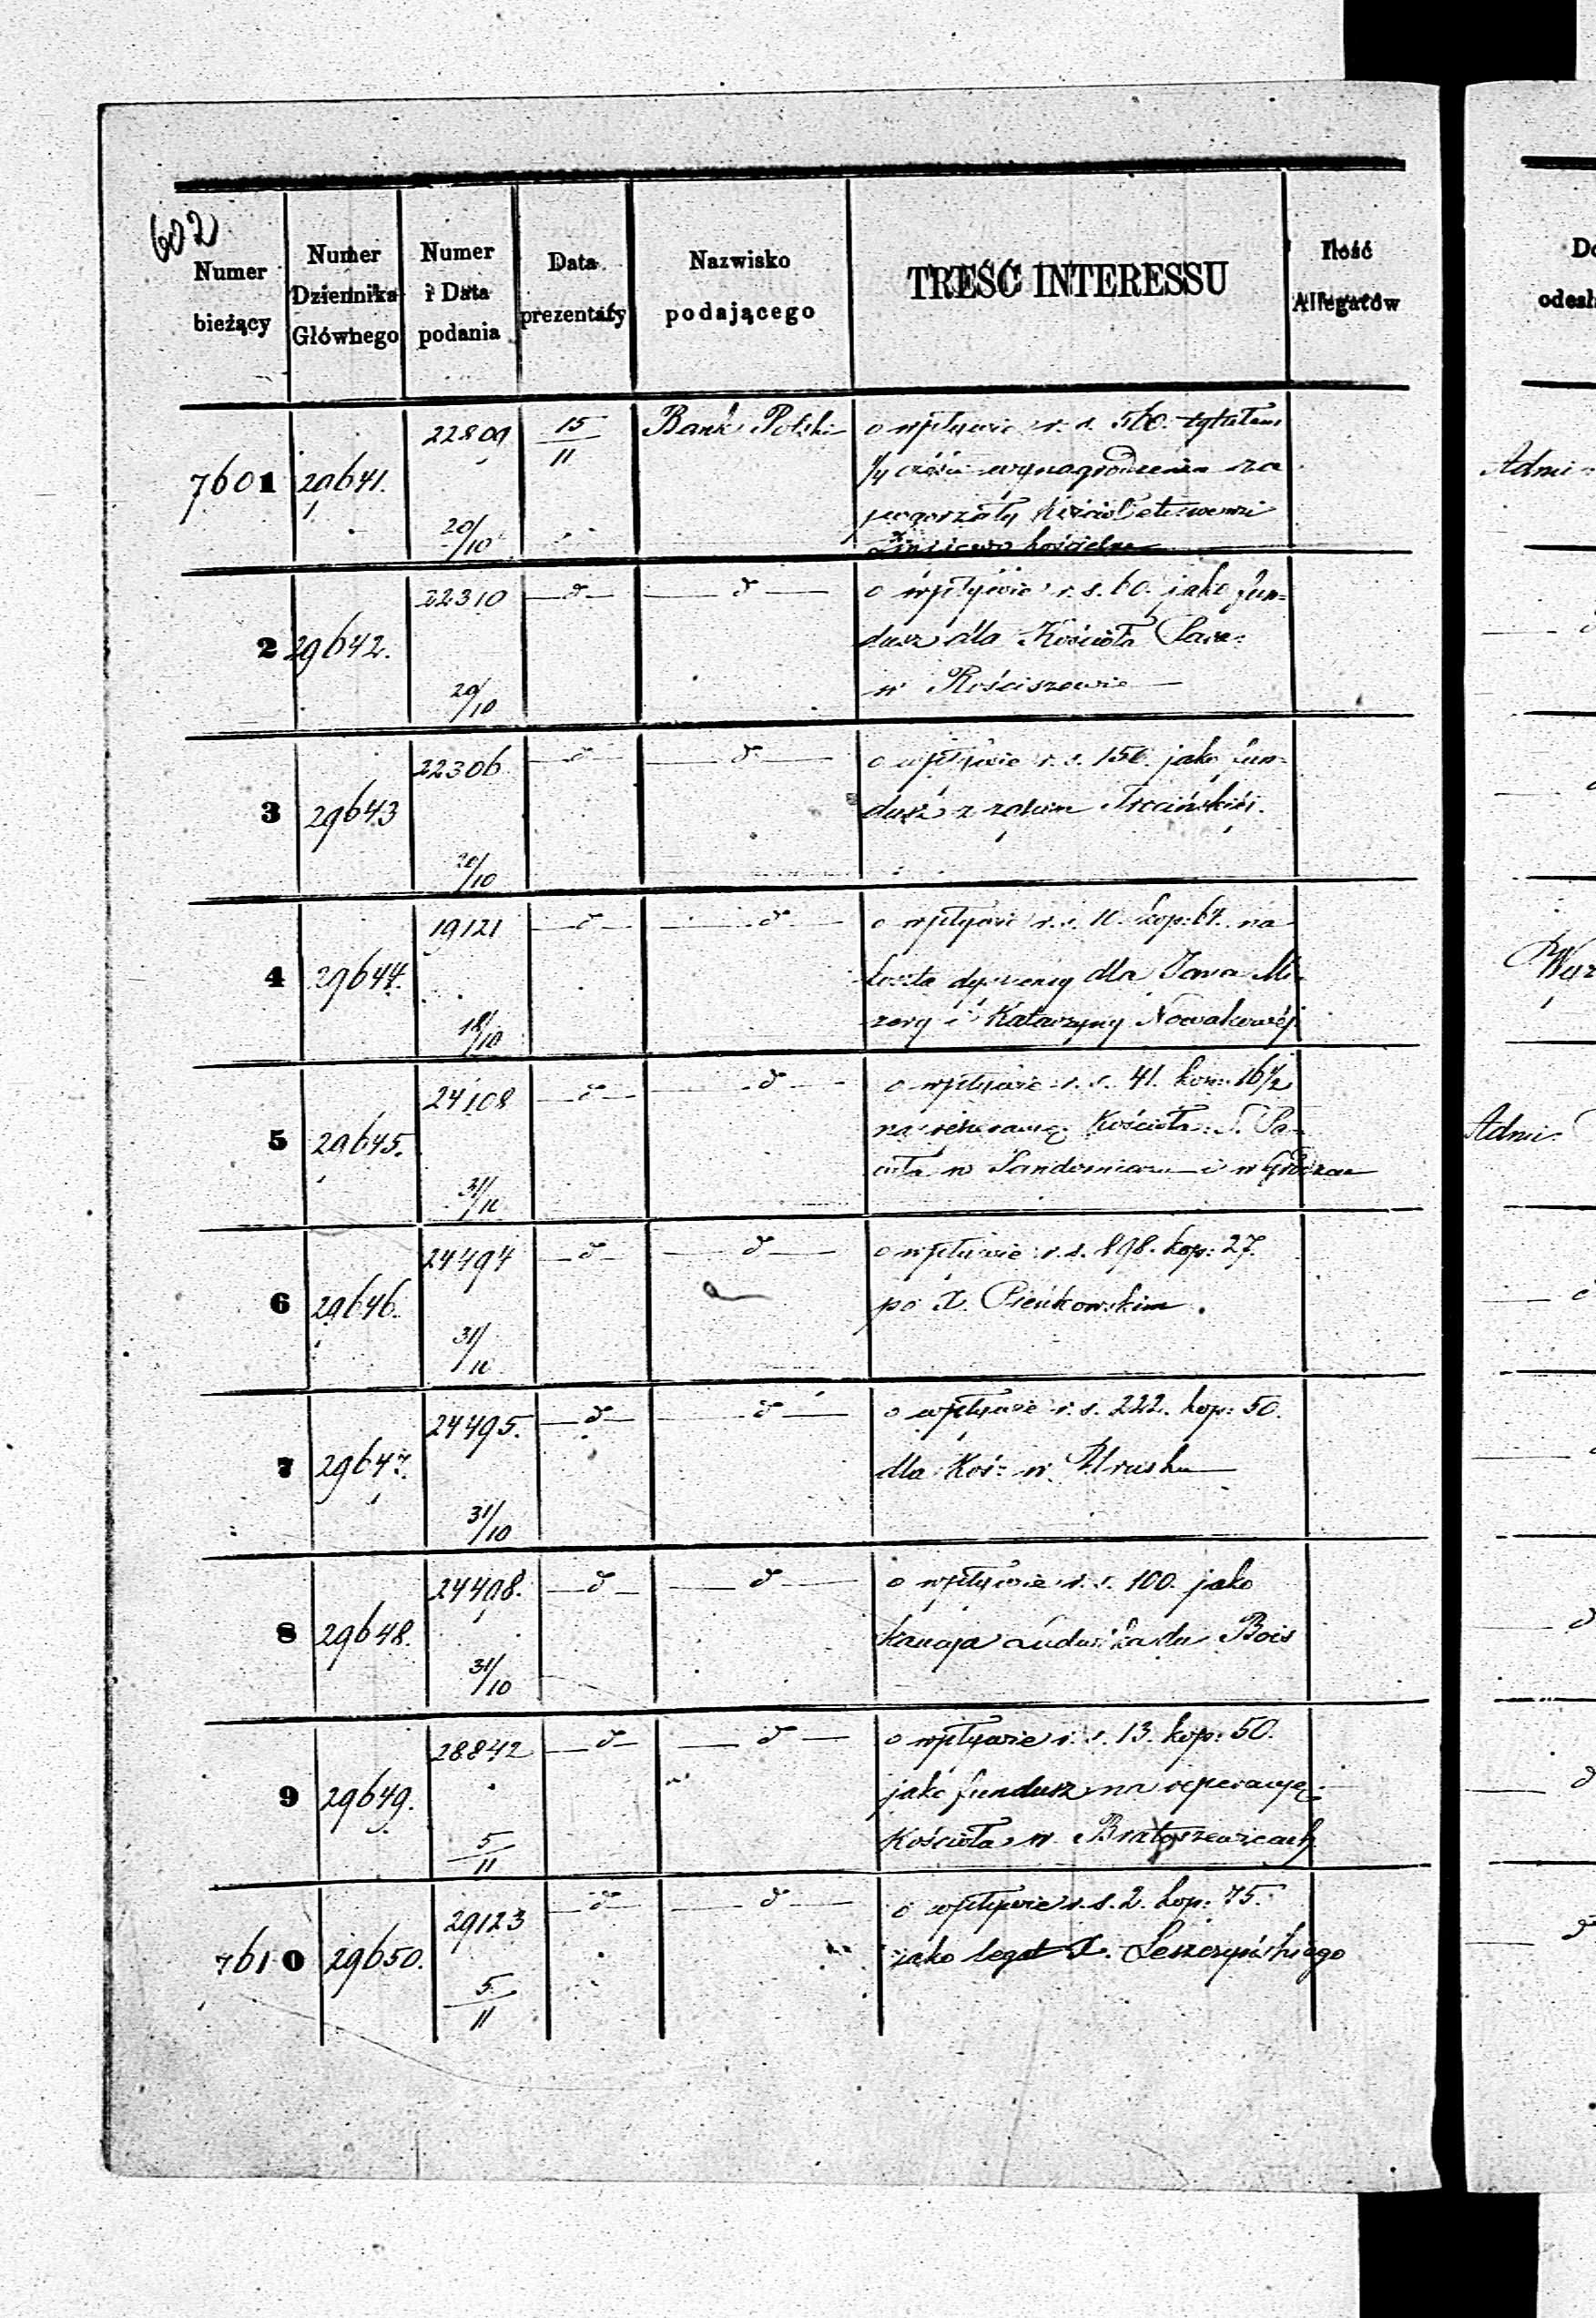 602
Numer bieżący
Numer Dziennika Głównego
Numer i Data podania
Data prezentaty
Nazwisko podającego
TREŚĆ INTERESSU
Ilość Allegatów
7601 29641. 22809 20/10 15/11 Bank Polski
o wpływie r. s. 560. tytułem
1/4 części wynagrodzenia za
pogorzały Kościół
kościelne
2 29642. 22310 20/10 d d
o wpływie r. s. 60. jako fun-
dusz dla Kościoła Par:
w Rościszewie
3 29643 22306 20/10 d d
o wpływie r. s. 150. jako fun-
dusz z Trcińskiéj.
4 29644. 19121 18/10 d d
o wpływie r. s. 10. kop: 67. na
koszta dyspensy dla Jana Mi-
zery i Katarzyny Nowakowéj
5 29645. 24108 31/10 d d
o wpływie r. s. 41. kop: 16 1/2
na reperacyę Kościoła Ś. Pa-
wła w Sandomierzu i w
6 29646. 24494 31/10 d d
o wpływie r. s. 898. kop: 27.
po X. Pieńkowskim.
7 29647. 24495. 31/10 d d
o wpływie r. s. 222. kop: 50.
dla Koś: w
8 29648. 24498. 31/10 d d
o wpływie r. s. 100. jako
kaucja Ludwika du Bois
9 29649. 28842 5/11 d d
o wpływie r. s. 13. kop: 50.
jako fundusz na reperacyę
Kościoła w Bratoszewicach
7610 29650. 29123 5/11 d d
o wpływie r. s. 2. kop: 75.
jako legat X. Leszczyńskiego
Admi-
Admi: